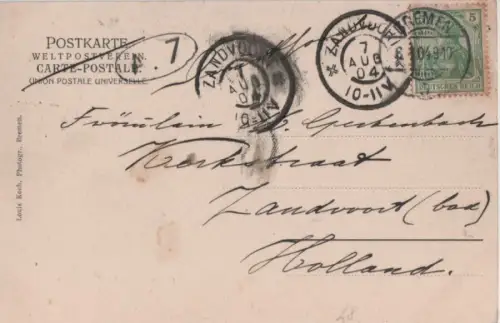 POSTKARTE
WELTPOSTVEREIN.
CARTE-POSTALE
UNION POSTALE UNIVERSELLE.
7
ZANDVOORT
7
AUG
04
10-11V
ZANDVOORT
7
AUG
04
10-11V
BREMEN
5
DEUTSCHES REICH
Fräulein
Kerkstraat
Zandvoort (bad)
Holland.
Louis Koch, Photogr., Bremen.